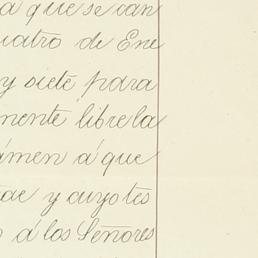 a que se can
uatro de Ene
y siete para
mente libre la
ámen á que
ae y cuyo tes
á los Señores